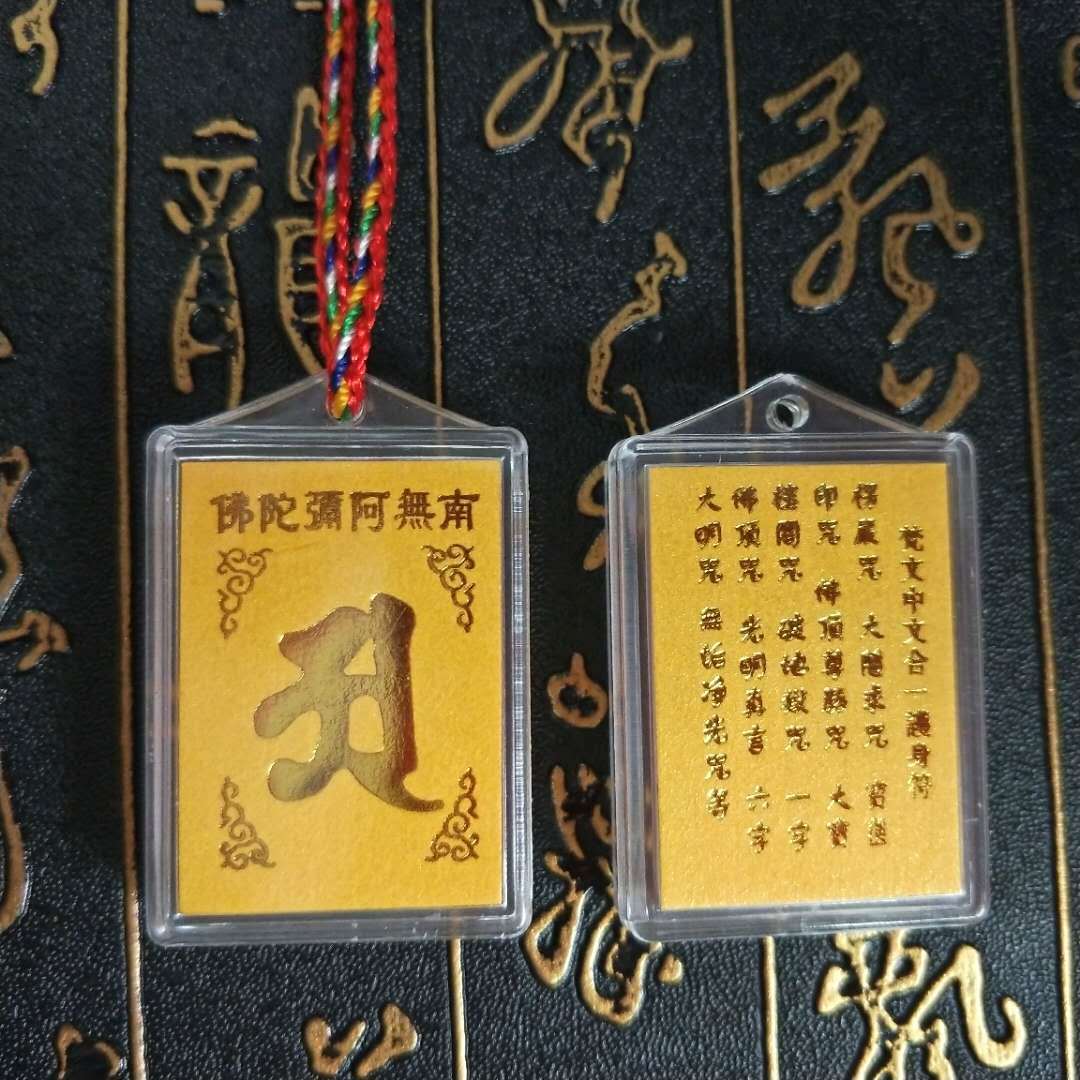 南無阿彌陀佛
𑖀
梵文中文合一護身符
楞嚴咒 大隨求咒 寶篋
印咒 佛頂尊勝咒 大寶
樓閣咒 破地獄咒 一字
佛頂咒 光明真言 六字
大明咒 無垢淨光咒等